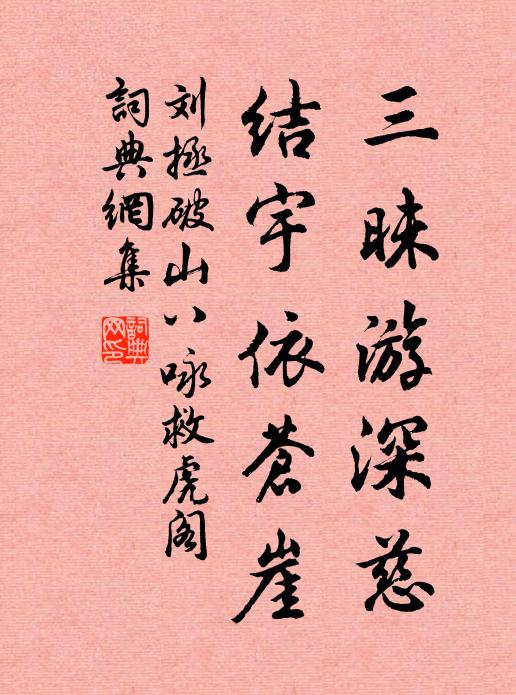 三昧游深慈
结宇依苍崖
刘拯破山八咏救虎阁
词典网集
词典
网印